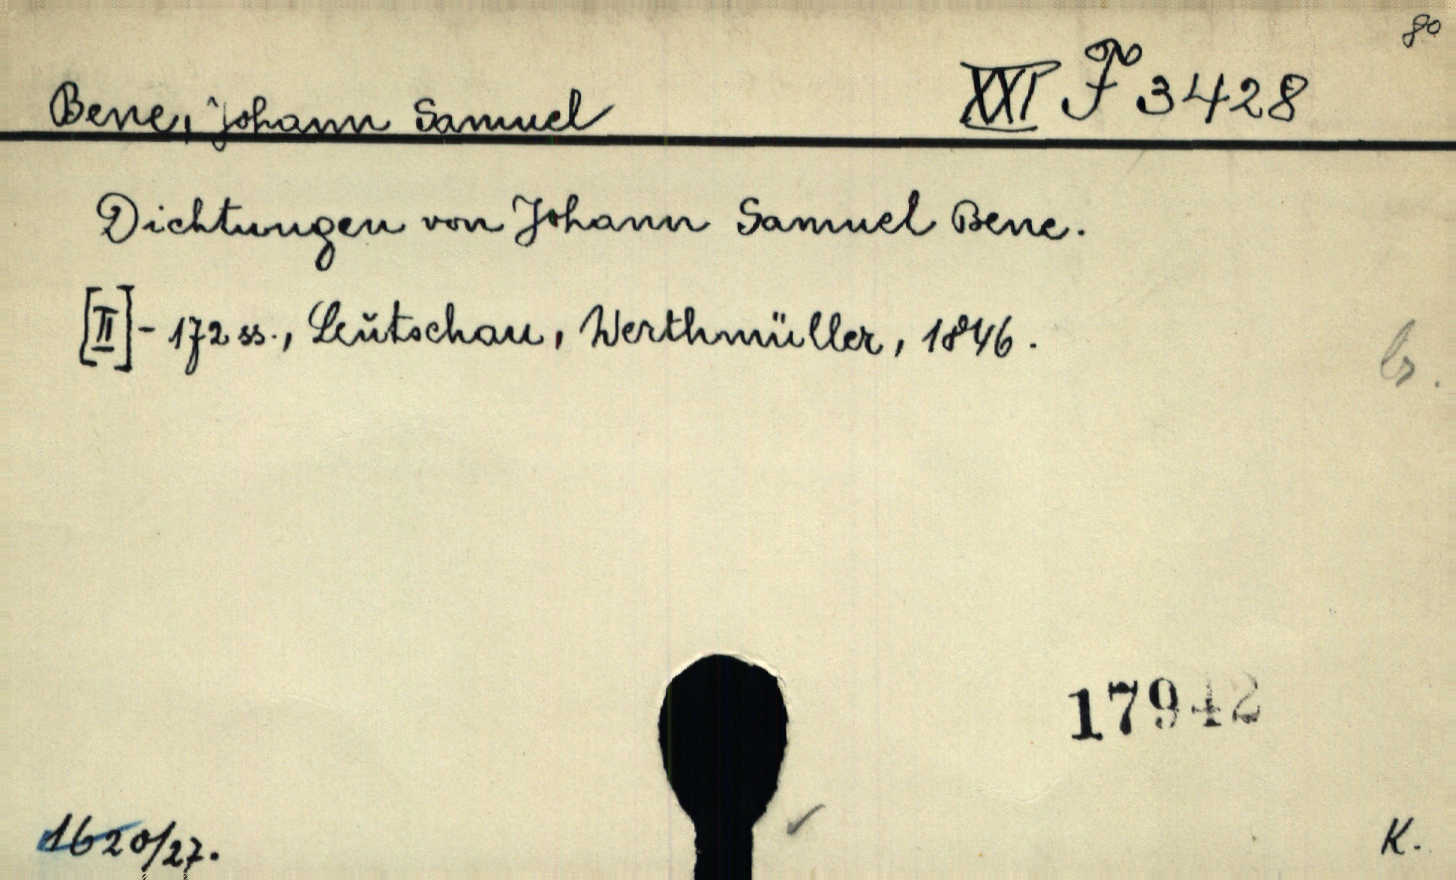 80
Bene, Johann Samuel XXI F 3428
Dichtungen von Johann Samuel Bene.
[II] - 172 ss., Leŭtschau, Werthmüller, 1846.
17942
1620/27.
K.